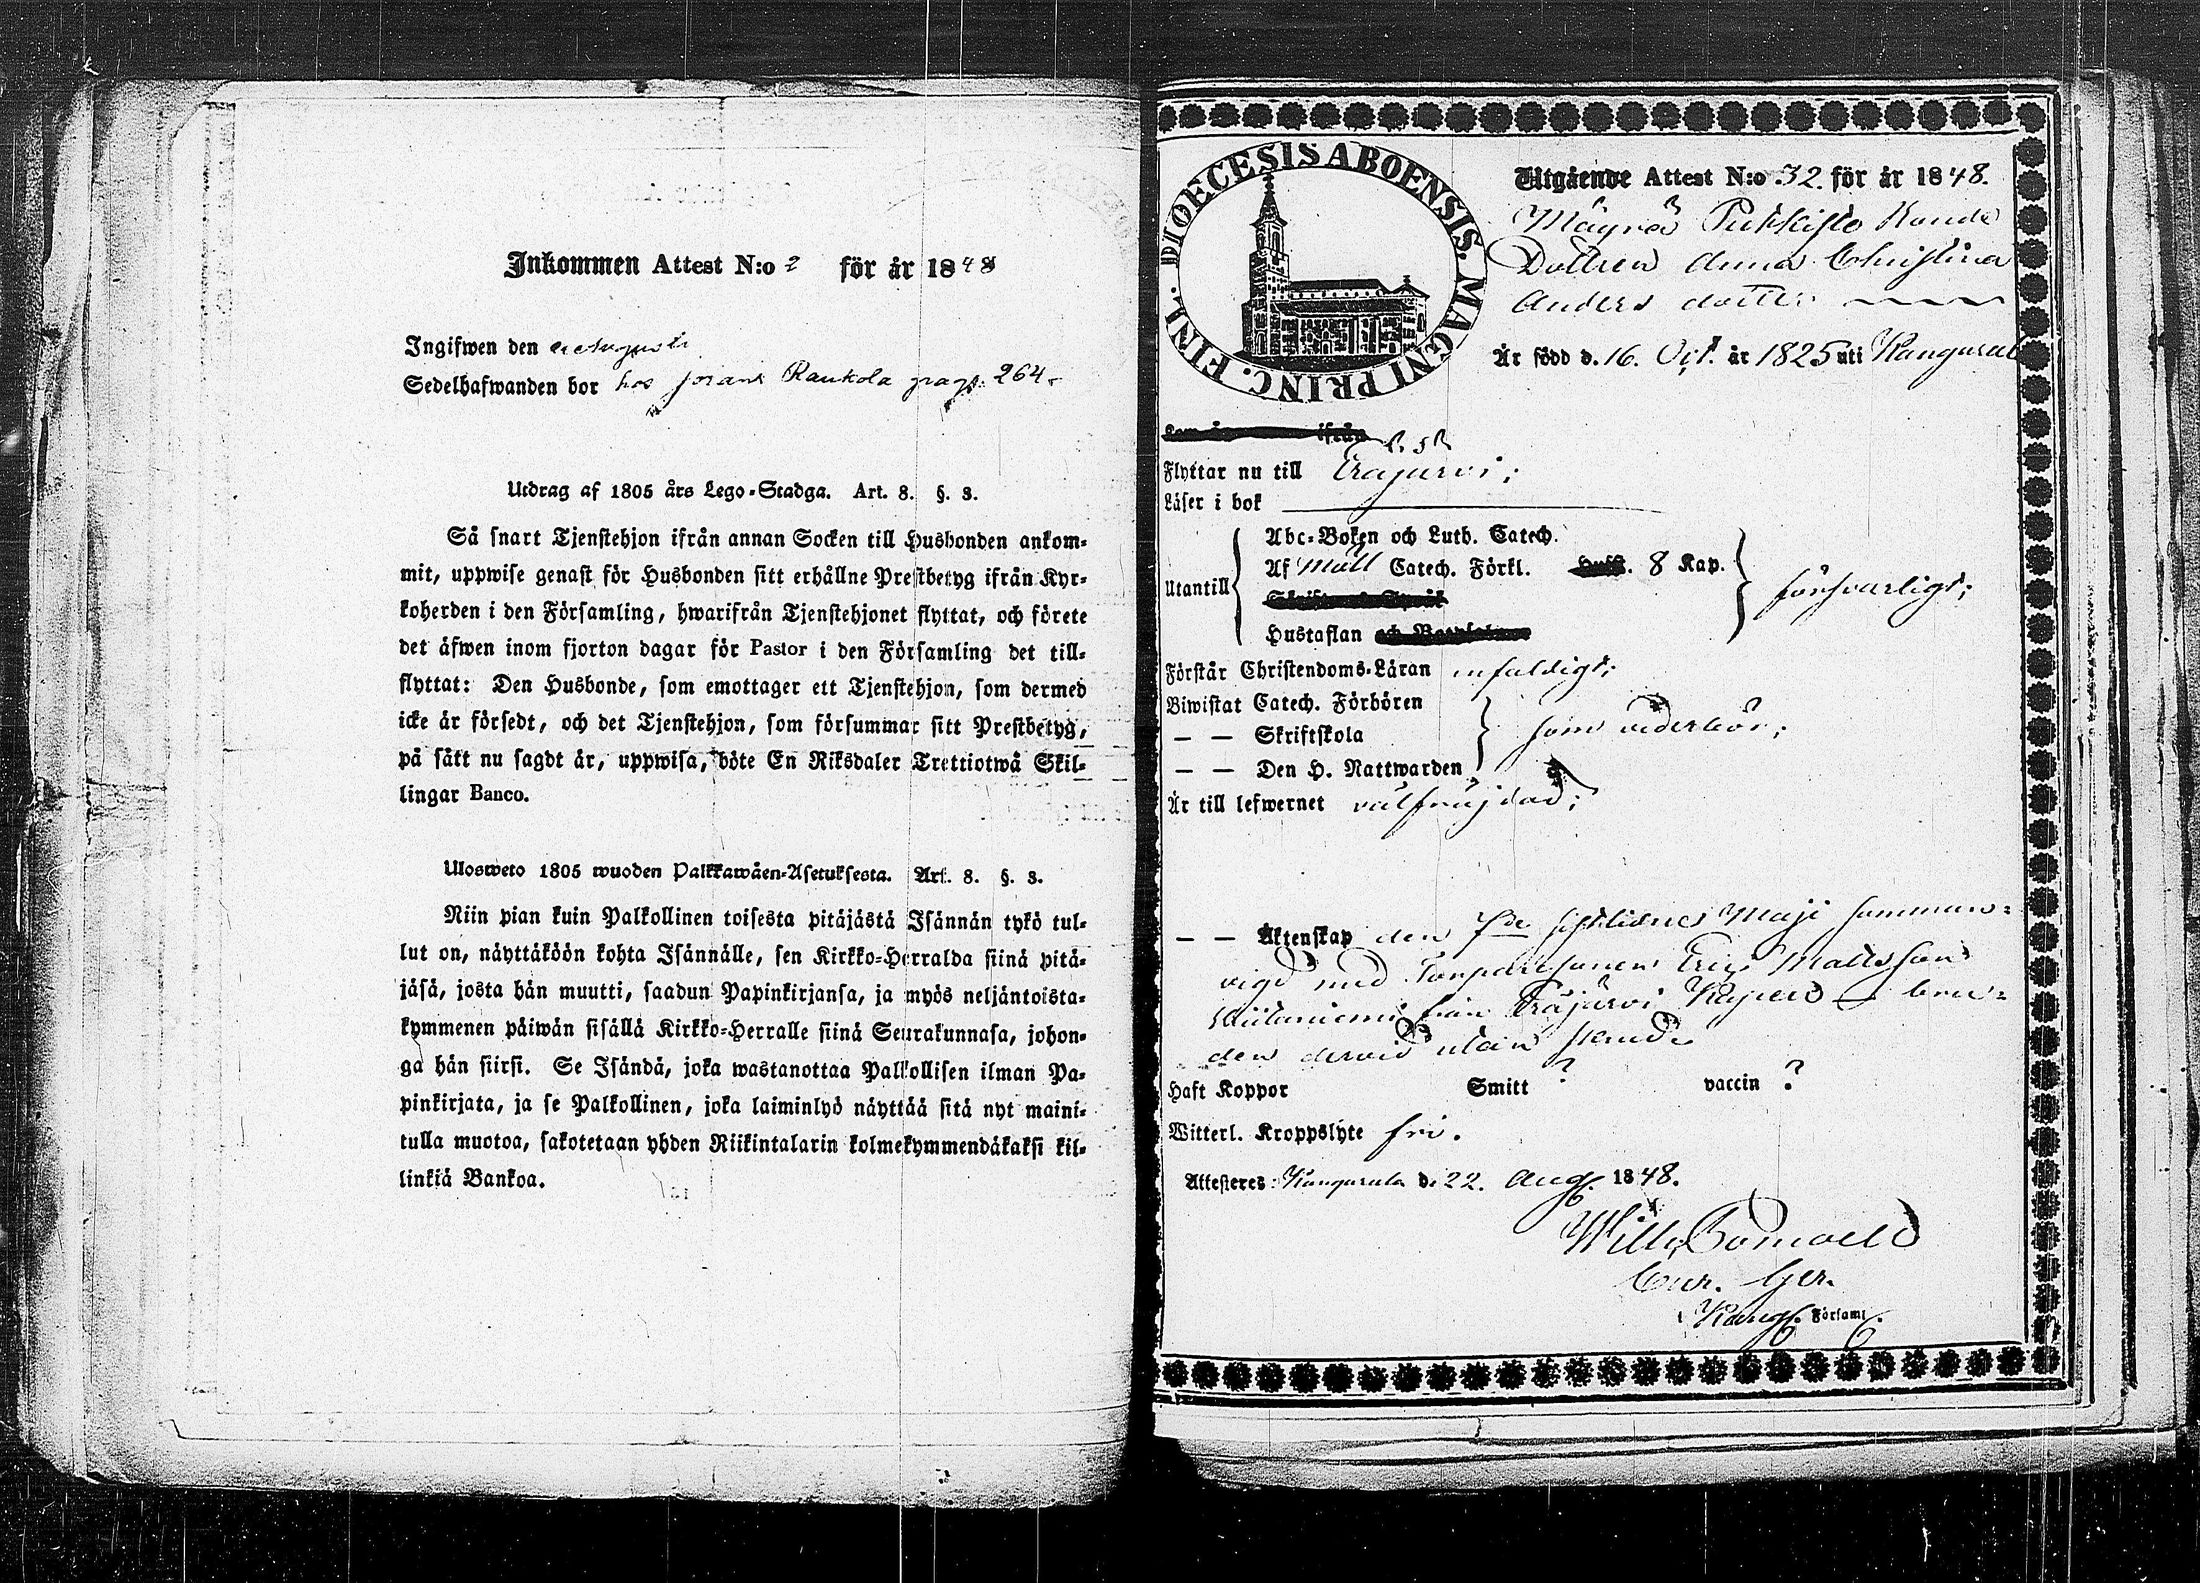 Inkommen Attest N:o 2 för år 1848
Ingifwen den Augusti
Sedelhafwanden bor hos Raukola pag. 264.
Utdrag af 1805 års Lego-Stadga. Art. 8. §. 3.
Så snart Tjenstehjon ifrån annan Socken till Husbonden ankom-
mit, uppwise genast för Husbonden sitt erhållne Prestbetyg ifrån Kyr-
koherden i den Församling, hwarifrån Tjenstehjonet flyttat, och förete
det äfwen inom fjorton dagar för Pastor i den Församling det till-
flyttat: Den Husbonde, som emottager ett Tjenstehjon, som dermed
icke är försedt, och det Tjenstehjon, som försummar sitt Prestbetyg,
på sätt nu sagdt är, uppwisa, böte En Riksdaler Trettiotwå Skil-
lingar Banco.
Ulosweto 1805 wuoden Palkkawäen-Asetuksesta. Art. 8. §. 3.
Niin pian kuin Palkollinen toisesta pitäjästä Isännän tykö tul-
lut on, näyttäköön kohta Isännälle, sen Kirkko-Herralda siinä pitä-
jäsä, josta hän muutti, saadun Papinkirjansa, ja myös neljäntoista-
kymmenen päiwän sisällä Kirkko-Herralle siinä Seurakunnasa, johon-
ga hän siirsi. Se Isändä, joka wastanottaa Palkollisen ilman Pa-
pinkirjata, ja se Palkollinen, joka laiminlyö näyttää sitä nyt maini-
tulla muotoa, sakotetaan yhden Riikintalarin kolmekymmendäkaksi kil-
linkiä Bankoa.
DIOECESIS ABOENSIS. MAGNI PRINC. FINL.
Utgående Attest N:o 32. för år 1848.
Mäyrä Pukkisto Bonde
Dottren Anna Christina
Anders dotter
Är född d. 16. Oct. år 1825 uti Kangasal
ifrån
Flyttar nu till Eräjärvi;
Läser i bok
Utantill
Abc-Boken och Luth. Catech.
Af Möll Catech. Förkl. 8 Kap.
Hustaflan
försvarligt;
Förstår Christendoms-Läran enfaldigt;
Biwistat Catech. Förhören
— — Skriftskola
— — Den H. Nattwarden
som vederbör;
Är till lefwernet välfräjdad;
— — Äktenskap den 7de sistlidne Maji samman-
vigd med Torparesonen Eric Mattsson
från Eräjärvi Kapell
den dervid utan
Haft Koppor Smitt ? vaccin ?
Witterl. Kroppslyte fri.
Attesteres: Kangasala d. 22. Aug. 1848.
Wilh.
Cur. Ger.
i Kangs. Förſaml.